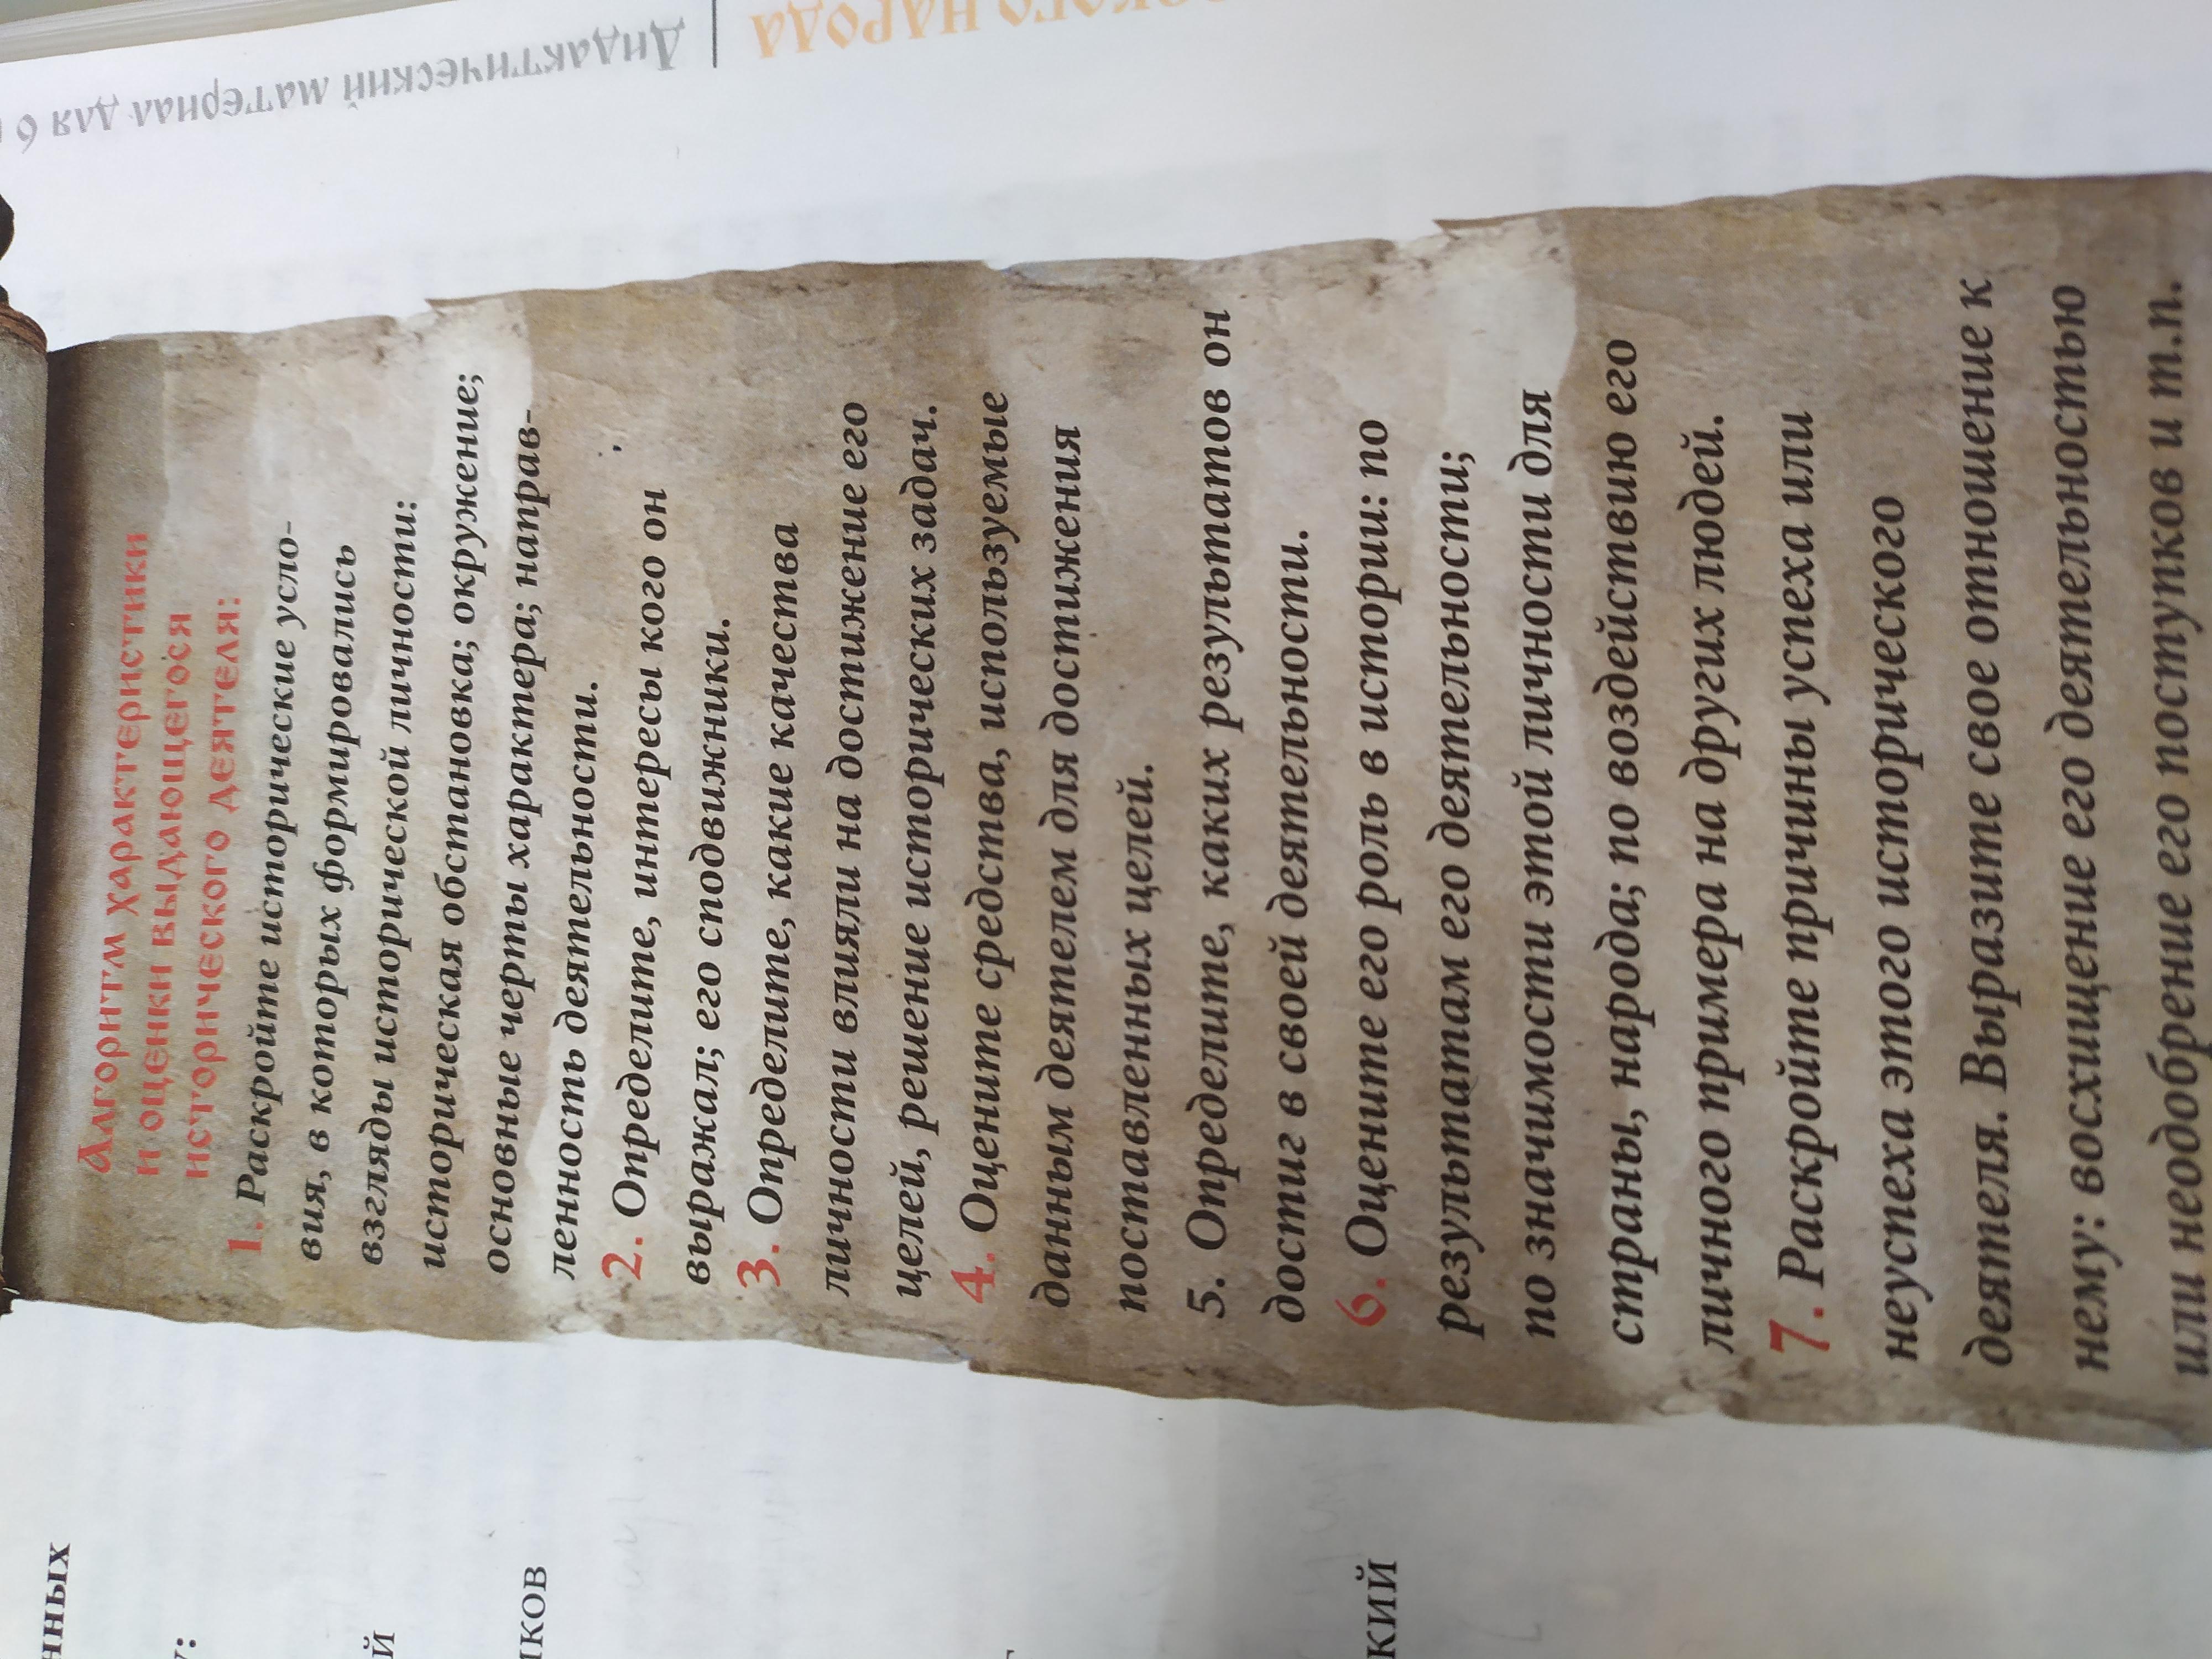 Дидактический материал для 6
НАРОДА
Алгоритм характеристики
и оценки выдающегося
исторического деятеля:
1. Раскройте исторические усло-
вия, в которых формировались
взгляды исторической личности:
историческая обстановка; окружение;
основные черты характера; направ-
ленность деятельности.
2. Определите, интересы кого он
выражал; его сподвижники.
3. Определите, какие качества
личности влияли на достижение его
целей, решение исторических задач.
4. Оцените средства, используемые
данным деятелем для достижения
поставленных целей.
5. Определите, каких результатов он
достиг в своей деятельности.
6. Оцените его роль в истории: по
результатам его деятельности;
по значимости этой личности для
страны, народа; по воздействию его
личного примера на других людей.
7. Раскройте причины успеха или
неуспеха этого исторического
деятеля. Выразите свое отношение к
нему: восхищение его деятельностью
или неодобрение его поступков и т.п.